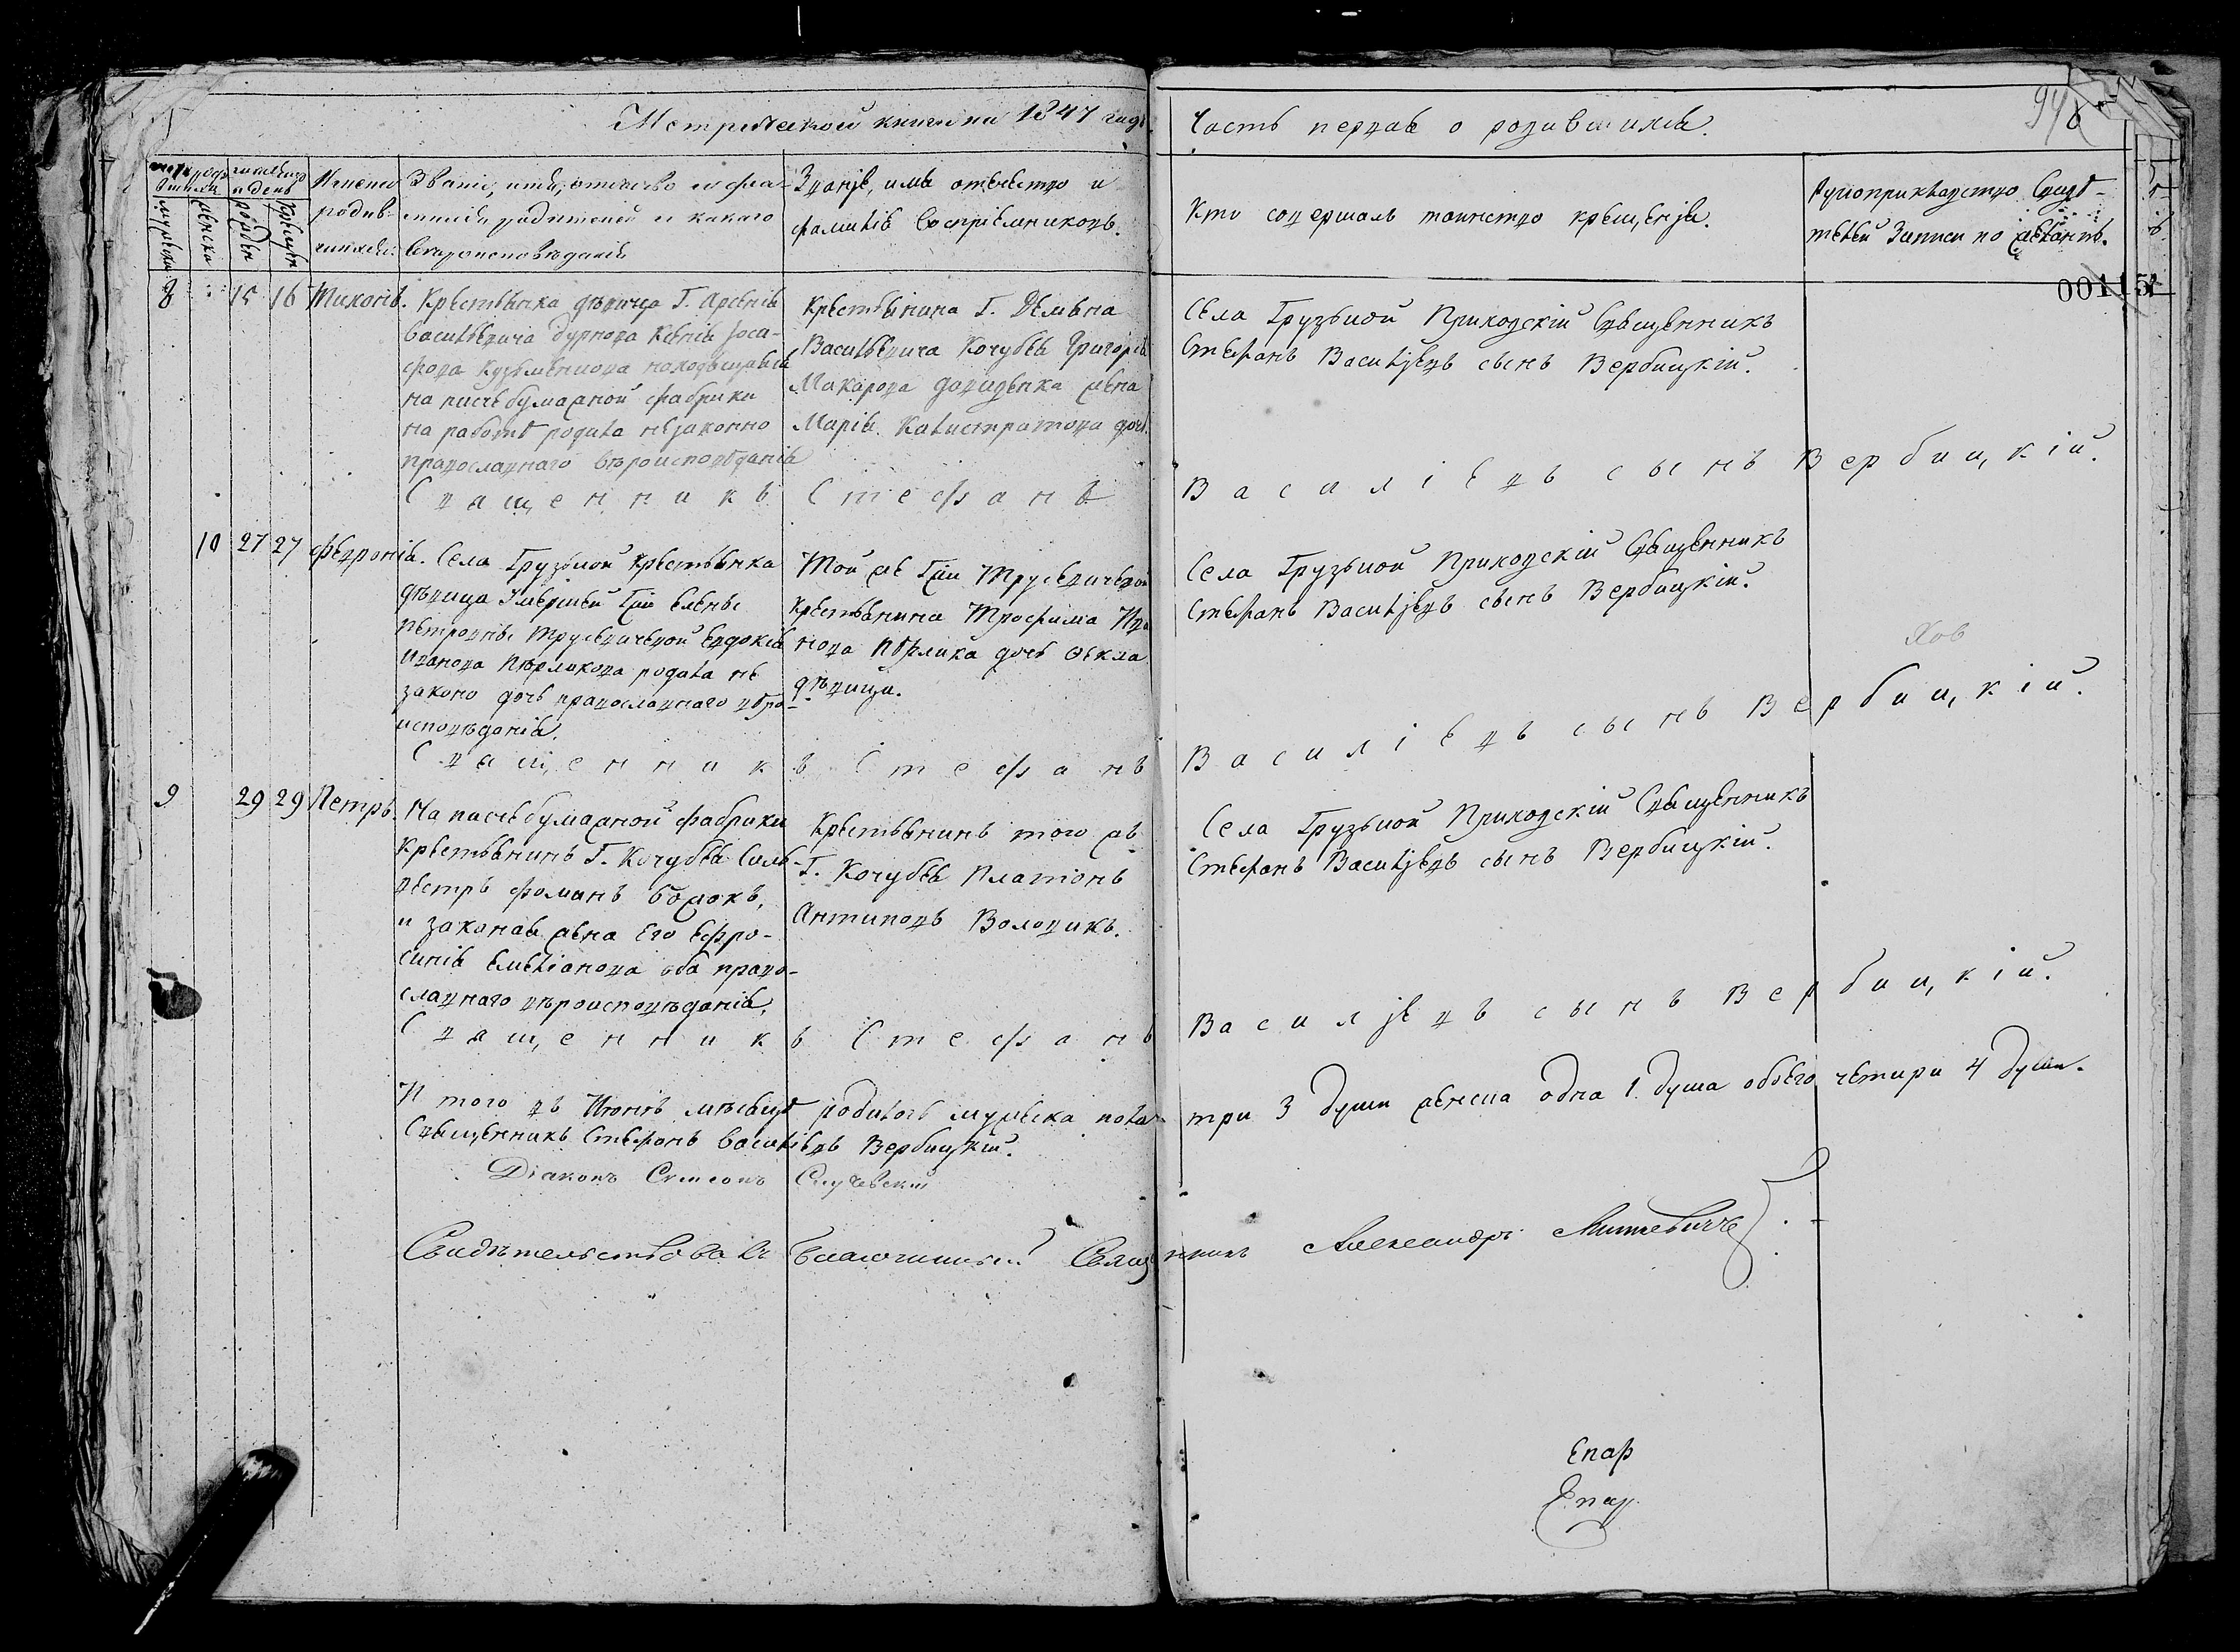 Метрической книги на 1847 годъ.
Часть первая о родившихся.
948
Имена родив-
шихся.
Званіе, имя, отчество и фа-
милія родителей и какаго
вѣроисповѣданія
Званіе, имя отечество и
фамилія воспріемниковъ.
Кто совершалъ таинство крещенія.
Рукоприкладство свидѣ-
телей записи по желанію.
00115
8 15 16 Тихонъ.
Крестьянка дѣвица Г. Арсенія
Васильевича Дурнова Ксенія Іоса-
фова Кузьменкова находящаяся
на писчебумажной фабрики
на работѣ родила незаконно
православнаго вѣроисповѣданія
Крестьянина Г. Демьяна
Васильевича Кочубея Григорія
Макарова жена
Марія Калистратова дочь.
Села Грузькой Приходскій Священникъ
Стефанъ Васильевъ сынъ Вербицкій.
Священникъ Стефанъ Василіевъ сынъ Вербицкій.
10 27 27 Февронія.
Села Грузькой Крестьянка
дѣвица умершей Гжи Елены
Петровны Трусевичевой Евдокія
Иванова родила не
законо дочь православнаго вѣро-
исповѣданія.
Той же Гжи Трусевичевой
Крестьянина Трофима Ива
нова дочь Фекла
дѣвица.
Села Грузькой Приходскій Священникъ
Стефанъ Васильевъ сынъ Вербицкій.
Священникъ Стефанъ Василіевъ сынъ Вербицкій.
9 29 29 Петръ.
На писчебумажной фабрики
Крестьянинъ Г. Кочубея Силь-
вестръ Фоминъ Божокъ,
и законая жена его Ефро-
синія Емеліанова оба право-
славнаго вѣроисповѣданія,
Крестьянинъ того же
Г. Кочубея Платонъ
Антиповъ Воловикъ.
Села Грузькой Приходскій Священникъ
Стефанъ Васильевъ сынъ Вербицкій.
Священникъ Стефанъ Васильевъ сынъ Вербицкій.
И того въ Июнѣ мѣсяцѣ родилось мужеска пола три 3 души женска одна 1. душа обоего четири 4 души.
Священникъ Стефанъ Василіевъ Вербицкій.
Діаконъ Симеонъ
Свидѣтельствовалъ Благочинный Священникъ Александръ
Епар
Епар